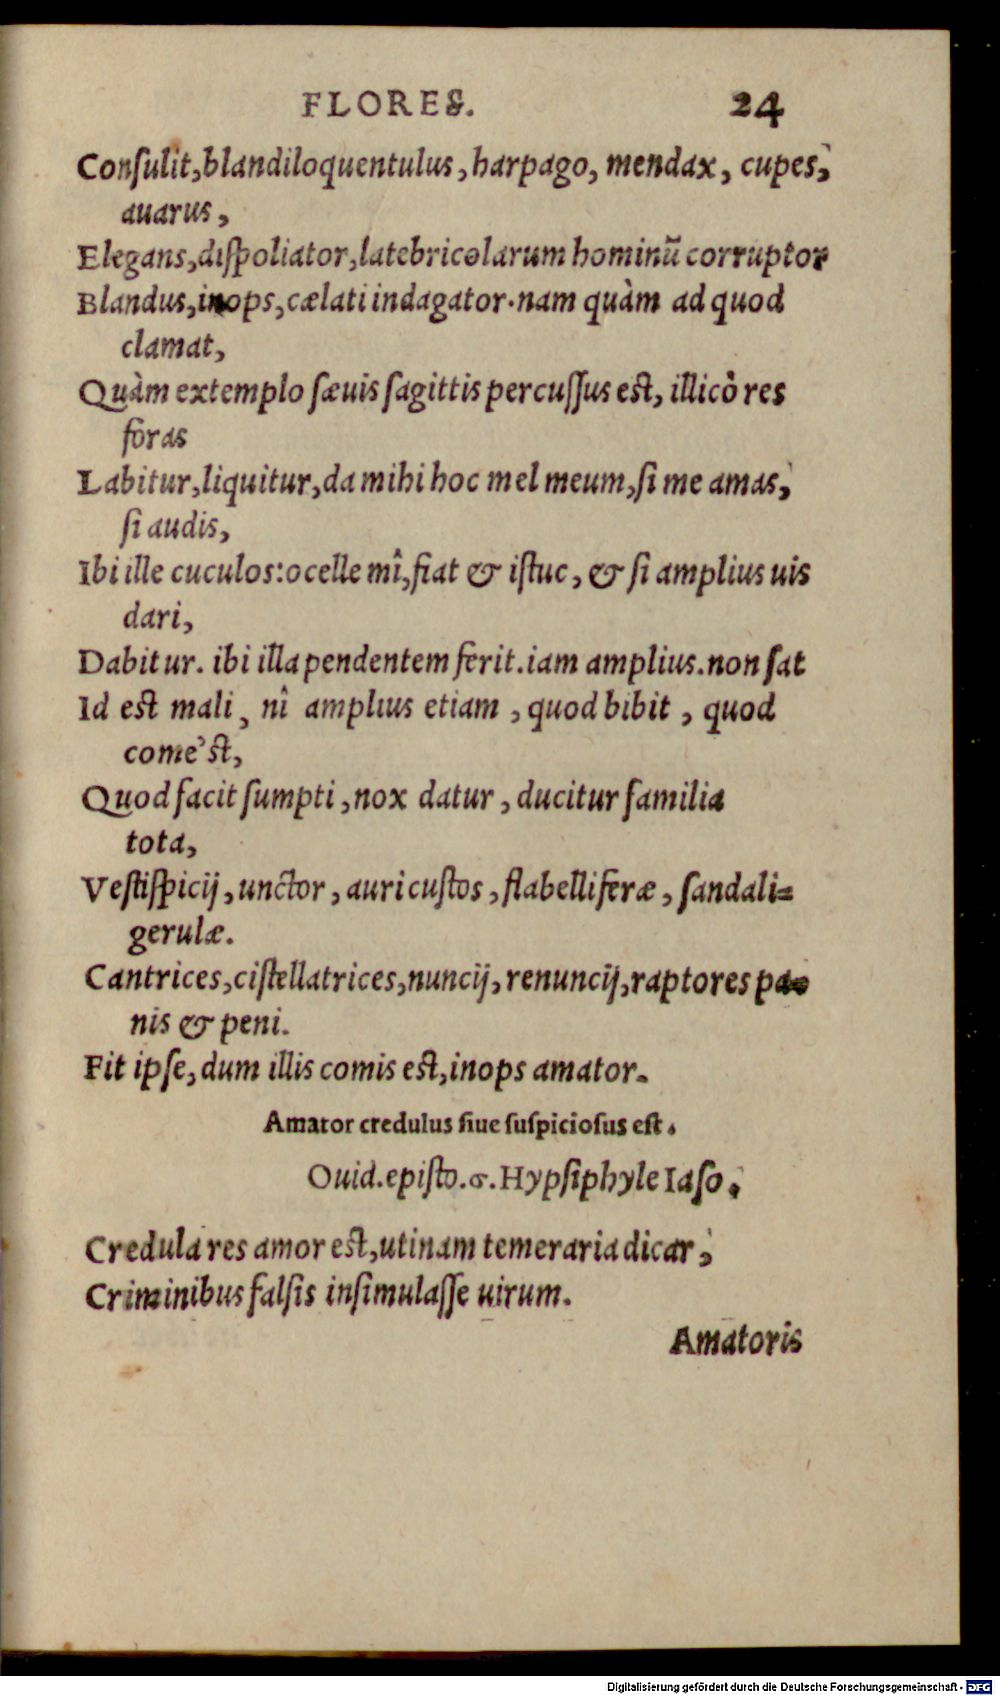 FLORES. 24
Conſulit,blandiloquentulus, harpago, mendax, cupes,
auarus,
Elegans,diſpoliator,latebricolarum hominū corruptor
Blandus,inops,cælati indagator.nam quàm ad quod
clamat,
Quàm extemplo ſæuis ſagittis percuſſus eſt, illicò res
foras
Labitur,liquitur,da mihi hoc mel meum,ſi me amas,
ſi audis,
Ibi ille cuculos:ocelle mî,fiat & iſtuc, & ſi amplius uis
dari,
Dabitur. ibi illa pendentem ferit.iam amplius.non ſat
Id eſt mali, nî amplius etiam, quod bibit, quod
come'ſt,
Quod facit ſumpti, nox datur, ducitur familia
tota,
Veſtiſpicij, unctor, auricuſtos, flabelliferæ, ſandali=
gerulæ.
Cantrices,ciſtellatrices,nuncij, renuncij,raptores pa=
nis & peni.
Fit ipſe, dum illis comis eſt,inops amator.
Amator credulus ſiue ſuſpicioſus eſt.
Ouid.epiſto.6.Hypſiphyle Iaſo.
Credula res amor eſt,utinam temeraria dicar,
Criminibus falſis inſimulaſſe uirum.
Amatoris
Digitalisierung gefördert durch die Deutsche Forschungsgemeinschaft - DFG